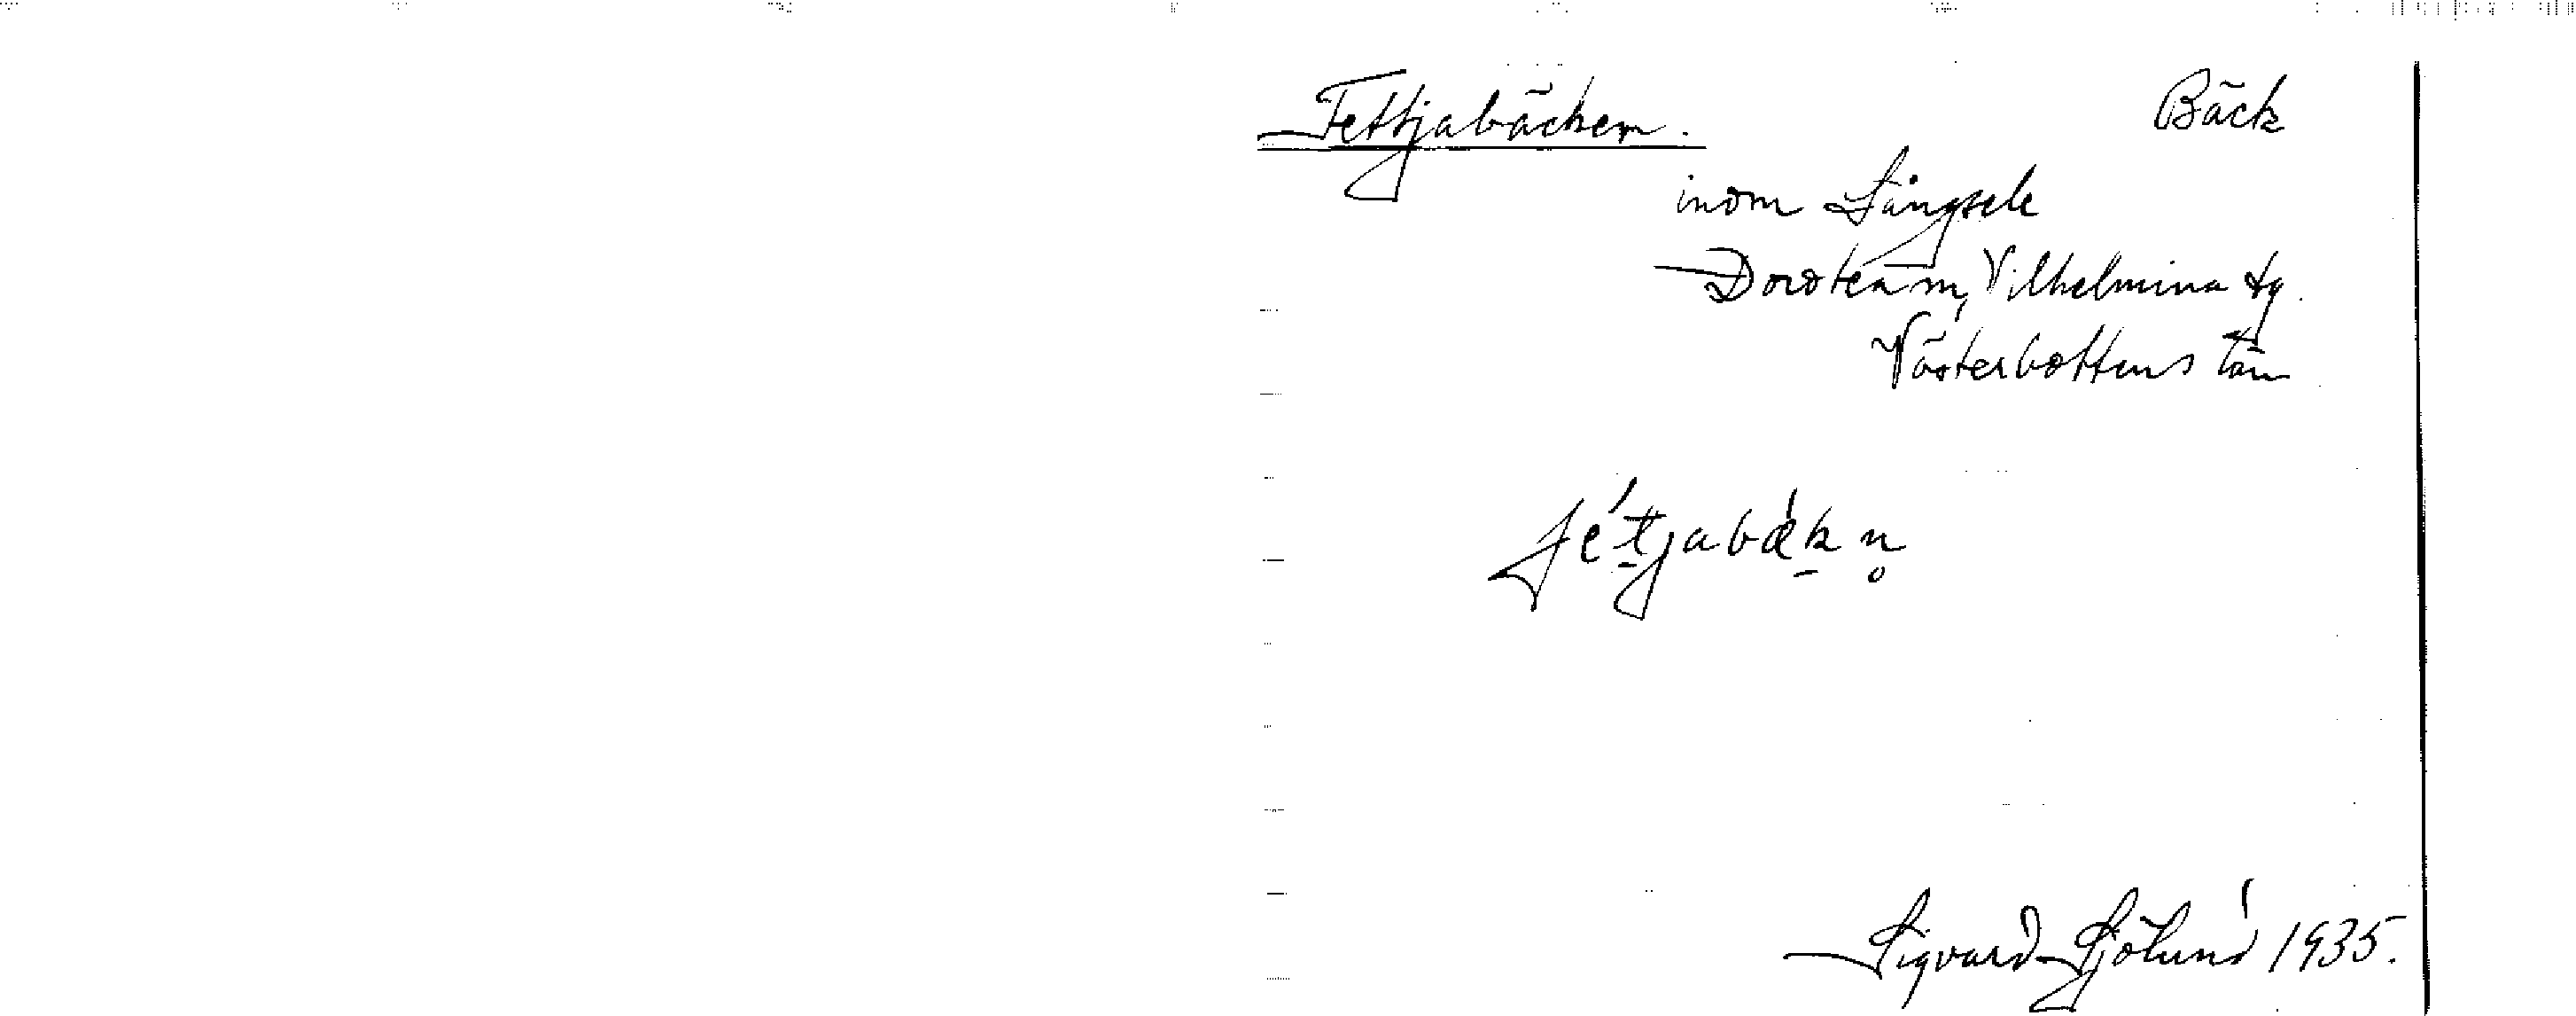 Fettjabäcken. Bäck
inom Långsele
Dorotea m, Vilhelmina tg.
Västerbottens län
fe´tjabæ`kn̥
Sigvard Sjölund 1935.